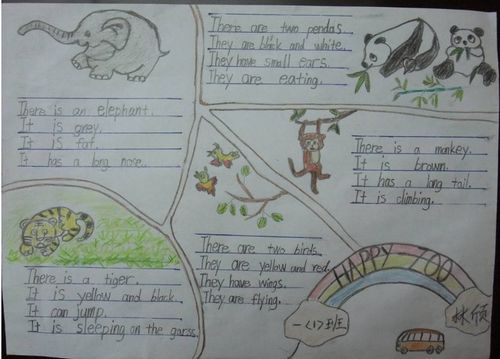 There is an elephant.
It is grey.
It is fat.
It has a long nose.
There are two pandas.
They are black and white.
They have small ears.
They are eating.
There is a monkey.
It is brown.
It has a long tail.
It is climbing.
There is a tiger.
It is yellow and black.
It can jump.
It is sleeping on the garss.
There are two birds.
They are yellow and red.
They have wings.
They are flying.
HAPPY ZOO
一〈1〉班